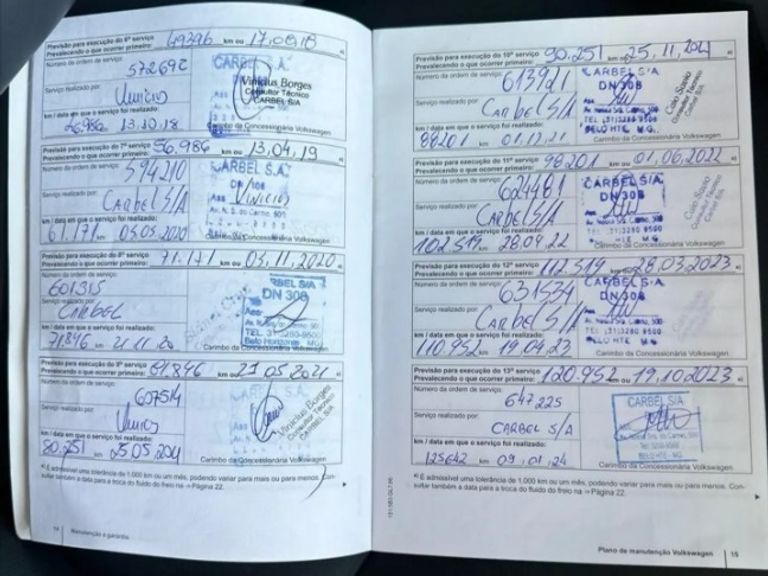 Previsão para execução do 6º serviço 49396 km ou 17.08.18 a)
Prevalecendo o que ocorrer primeiro:
Número da ordem de serviço: 572692
CARBEL S.A.
Serviço realizado por:
Vinicius
Vinicius Borges
Consultor Técnico
CARBEL S/A
km / data em que o serviço foi realizado:
13.10.18
Carimbo da Concessionária Volkswagen
Previsão para execução do 7º serviço 56.986 km ou 13,04,19 a)
Prevalecendo o que ocorrer primeiro:
Número da ordem de serviço: 594210
CARBEL S.A.
Serviço realizado por:
CARBEL S/A
Vinicios
km / data em que o serviço foi realizado:
61.171 km 05.05.2020
Carimbo da Concessionária Volkswagen
Previsão para execução do 8º serviço 71.171 km ou 05,11,2020 a)
Prevalecendo o que ocorrer primeiro:
Número da ordem de serviço:
601315
DN 308
Serviço realizado por:
CARBEL
TEL. 31 3280-9500
Belo Horizonte MG
km / data em que o serviço foi realizado:
71,846 km 21.11.20
Carimbo da Concessionária Volkswagen
Previsão para execução do 9º serviço 81.846 km ou 21 05 2021 a)
Prevalecendo o que ocorrer primeiro:
Número da ordem de serviço:
607514
Serviço realizado por:
Vinicius Borges
Consultor Técnico
CARBEL S/A
km / data em que o serviço foi realizado:
80.251 km
Carimbo da Concessionária Volkswagen
a) É admissível uma tolerância de 1.000 km ou um mês, podendo variar para mais ou para menos. Con-
sultar também a data para a troca do fluido do freio na ⇒ Página 22.
14 Manutenção e garantia
Previsão para execução do 10º serviço 90.251 km ou 25,11,2021 a)
Prevalecendo o que ocorrer primeiro:
Número da ordem de serviço: 613921
CARBEL S/A
DN 308
Serviço realizado por:
CARBEL S/A
TEL. (31)3280 9500
BELO HTE M.G.
Consultor Técnico
Carbel S/A
km / data em que o serviço foi realizado:
88201 km 01.12.21
Carimbo da Concessionária Volkswagen
Previsão para execução do 11º serviço 98.201 km ou 01,06,2022 a)
Prevalecendo o que ocorrer primeiro:
Número da ordem de serviço: 624481
CARBEL S/A
DN 308
Serviço realizado por:
CARBEL S/A
Consultor Técnico
Carbel S/A
km / data em que o serviço foi realizado:
102.519 km 28.04.22
Carimbo da Concessionária Volkswagen
Previsão para execução do 12º serviço 112.519 km ou 28.03.2023 a)
Prevalecendo o que ocorrer primeiro:
Número da ordem de serviço: 631534
CARBEL S.A
DN 308
Serviço realizado por:
CARBEL S/A
km / data em que o serviço foi realizado:
110.952 km 19.04.23
Carimbo da Concessionária Volkswagen
Previsão para execução do 13º serviço 120.952 km ou 19,10 2023 a)
Prevalecendo o que ocorrer primeiro:
Número da ordem de serviço:
647225
CARBEL S/A
Serviço realizado por:
CARBEL S/A
BELO HTE - MG
km / data em que o serviço foi realizado:
125642 km 09.01.24
Carimbo da Concessionária Volkswagen
a) É admissível uma tolerância de 1.000 km ou um mês, podendo variar para mais ou para menos. Con-
sultar também a data para a troca do fluido do freio na ⇒ Página 22.
Plano de manutenção Volkswagen 15